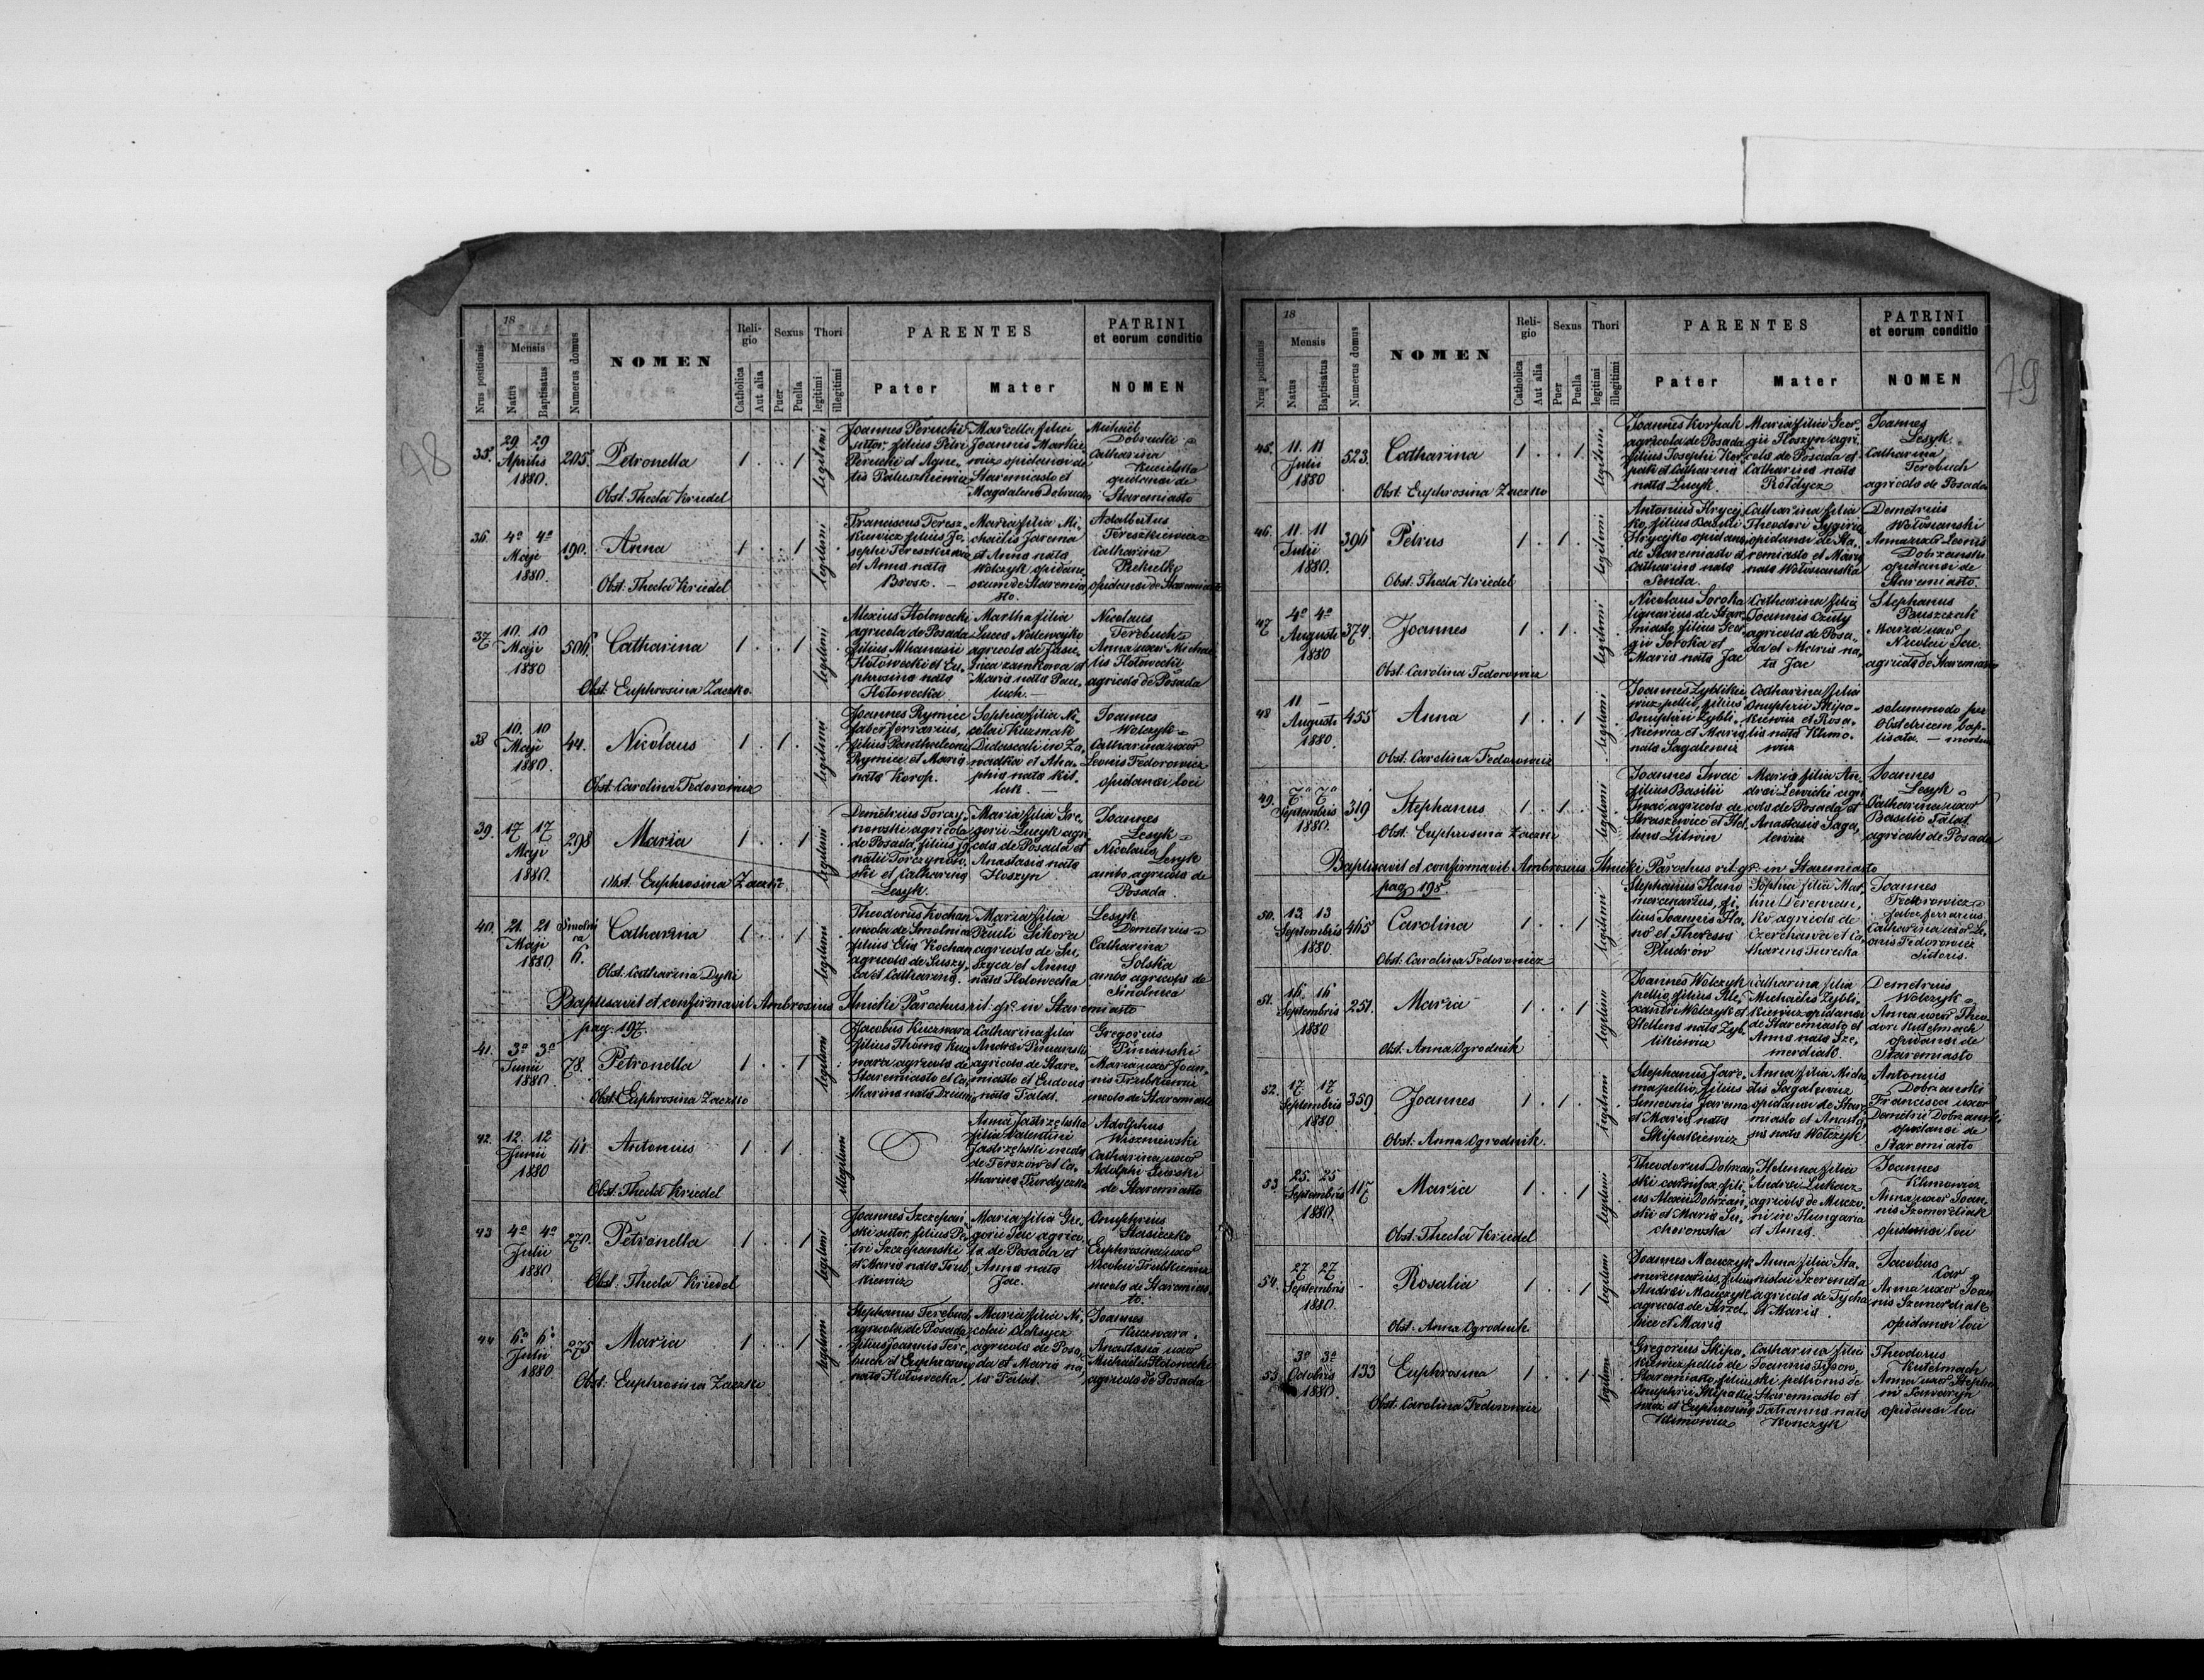 78
18
Nrus positionis
Mensis
Natus
Baptisatus
Numerus domus
NOMEN
Religio
Catholica
Aut alia
Sexus
Puer
Puella
Thori
legitimi
illegitimi
PARENTES
Pater
Mater
PATRINI
et eorum conditio
NOMEN
35. 29 29 Aprilis 1880. 205. Petronella 1 . . 1 legitimi
Obst. Thecla Kriedel
Joannes Perucki
sutor, filius Petri
Perucki et Agne-
tis Paluszkiewicz
Marcella filia
Joannis Markie-
wicz opidanoi de
Staremiasto et
Magdalena Dobrucka
Michael
Dobrucki
Catharina
opidanoi de
Staremiasto
36. 4a 4a Maji 1880. 190. Anna 1 . . 1 legitimi
Obst. Thecla Kriedel
Franciscus Teresz-
kiewicz filius Jo-
sephi Tereszkiewicz
et Anna nata
Brosz. —
Maria filia Mi-
chaelis Jarema
et Anna nata
Wolczyk opidan-
orum de Staremia-
sto.
Adalbertus
Tereszkiewicz
Catharina
opidanoi de Staremiasto
37. 10. 10 Maji 1880 506. Catharina 1 . . 1 legitimi
Obst. Euphrosina Zaczko.
Alexius Hołowecki
agricola de Posada
filius Athanasii
Hołowecki et Eu-
phrosina nata
Hołowecka
Martha filia
agricola de
zamkowa et
Maria nata Pau-
luch. —
Nicolaus
Terebuch
Anna uxor Michae-
lis Hołowecki
agricola de Posada
38 10. 10 Maji 1880. 44. Nicolaus 1 . 1 . legitimi
Obst. Carolina Fedorowicz
Joannes Rymiec
faber ferrarius,
filius Panthaleoni
Rymiec et Maria
nata Korop.
Sophia filia Ni-
colai Kuzmak
Didascali in Za-
wadka et Aha-
phia nata Kit-
luk. —
Joannes
Wolczyk
Catharina uxor
Leonis Fedorowicz
opidanoi loci
39. 17 17 Maji 1880. 298 Maria 1 . . 1 legitimi
Obst. Euphrosina Zaczko.
Demetrius Torczy-
nowski agricola
de Posada, filius Ig-
natii Torczynow-
ski et Catharina
Lesyk.
Maria filia Gre-
gorii Lucyk agri-
cola de Posada et
Anastasia nata
Hoszyn
Joannes
Lesyk
Nicolaus
Lesyk
ambo agricola de
Posada.
40. 21. 21 Maji 1880. Smolni
ca
6. Catharina 1 . . 1 legitimi
Obst. Catharina Dyki
Theodorus Kochan
incola de Smolnica
filius Elia Kochan
agricola de Suszy-
ca et Catharina.
Maria filia
Pauli Sikora
agricola de Su-
szyca et Anna
nata Hołowecka
Lesyk
Demetrius
Catharina
Solska
ambo agricola de
Smolnica
Baptisavit et confirmavit Ambrosius Ilnicki Parochus rit. gr. in Staremiasto
pag. 197.
41. 3a 3a Junii 1880. 78. Petronella 1 . . 1 legitimi
Obst. Euphrosina Zaczko
Jacobus Kuczwara
filius Thoma Kucz-
wara agricola de
Staremiasto et Ca-
tharina nata
Catharina filia
Andrei
agricola de Stare-
miasto et Eudocia
nata Falat.
Gregorius
Maria uxor Joan-
nis Trubkiewicz
incola de Staremiasto
42. 12. 12 Junii 1880 Antonius 1 . 1 . illegitimi
Obst. Thecla Kriedel
Anna Jastrzębska
filia Valentini
Jastrzębski incola
de Terszów et Ca-
tharina Turdyczka
Adolphus
Wiszniewski
Catharina uxor
Adolphi Gurski
de Staremiasto
43 4a 4a Julii 1880. 270. Petronella 1 . . 1 legitimi
Obst. Thecla Kriedel
Joannes Szczepań-
ski sutor, filius Pe-
tri Szczepanski
et Maria nata Trub-
kiewicz
Maria filia Gre-
gorii agrico-
la de Posada et
Anna nata
Jac.
Onuphrius
Stasieczko
Euphrosina uxor
Nicolai Trubkiewicz
incola de Staremias-
to.
44 6a 6a Julii 1880 275 Maria 1 . . 1 legitimi
Obst. Euphrosina Zaczko
Stephanus Terebuch
agricola de Posada
filius Joannis Tere-
buch et Euphrosina
nata Hołowecka.
Maria filia Ni-
colai Oleksycz
agricola de Posa-
da et Maria na-
ta Falat.
Joannes
Kuczwara.
Anastasia uxor
Michaelis Hołowecki
agricola de Posada
79
18
Nrus positionis
Mensis
Natus
Baptisatus
Numerus domus
NOMEN
Religio
Catholica
Aut alia
Sexus
Puer
Puella
Thori
legitimi
illegitimi
PARENTES
Pater
Mater
PATRINI
et eorum conditio
NOMEN
45. 11. 11 Julii 1880 523. Catharina 1 . . 1. legitimi
Obst. Euphrosina Zaczko
Joannes Korpak
agricola de Posada
filius Josephi Kor-
pak et Catharina
nata Lucyk.
Maria filia Geor-
gii Hoszyn agri-
cola de Posada et
Catharina nata
Rołdycz
Joannes
Lesyk
Catharina
Terebuch
agricola de Posada
46. 11. 11 Julii 1880. 396 Petrus 1 . 1 . legitimi
Obst. Thecla Kriedel
Antonius Hrycy-
ko, filius Basilii
Hrycyko opidan.
de Staremiasto et
Catharina nata
Seneta.
Catharina filia
Theodori
opidanoi de Sta-
remiasto et Maria
nata Wołosianska
Demetrius
Wołosianski
Anna uxor Leonis
Dobrzanski
opidanoi de
Staremiasto.
47 4a 4a Augusti 1880 374. Joannes 1 . 1 . legitimi
Obst. Carolina Fedorowicz
Nicolaus Soroka
lignarius de Stare-
miasto, filius Geor-
gii Soroka et
Maria nata Jac
Catharina filia
Joannis Czuły
agricola de Posa-
da et Maria na-
ta Jac
Stephanus
Paszczak
Maria uxor
Nicolai Jac.
agricola de Staremiasto
48 11 — Augusti 1880. 455 Anna 1 . . 1 legitimi
Obst. Carolina Fedorowicz
Joannes Zyblikie-
wicz pellio, filius
Onuphrii Zybli-
kiewicz et Maria
nata Sagalewicz
Catharina filia
Onuphrii Skipa-
kiewicz et Rosa-
lia nata Klimo-
wicz
solummodo per
Obstetricem bap-
tisata. —
49. 7a 7a Septembris 1880. 319 Stephanus 1 . 1 . legitimi
Obst. Euphrosina Zaczko
Joannes Iwać
filius Basilii
Iwać agricola de
Straszewice et Hel-
lena Litwin
Maria filia An-
drei Lewicki agri-
cola de Posada et
Anastasia Saga-
lewicz
Joannes
Lesyk
Catharina uxor
Basilii Falat
agricola de Posada
Baptisavit et confirmavit Ambrosius Ilnicki Parochus rit. gr. in Staremiasto
pag. 198
50. 13. 13 Septembris 1880. 465 Carolina 1 . . 1 legitimi
Obst. Carolina Fedorowicz
Stephanus Hano
mercenarius, fi-
lius Joannis Ha-
no et Theressa
Pludrów
Sophia filia Mar-
tini Derewian-
ko agricola de
Czerchawa et Ca-
tharina Turecka
Joannes
Fedorowicz
faber ferrarius.
Catharina uxor Le-
onis Fedorowicz
Sutoris.
51. 16. 16 Septembris 1880 251. Maria 1 . . 1 legitimi
Obst. Anna Ogrodnik
Joannes Wolczyk
pellio, filius Ale-
xandri Wolczyk et
Hellena nata Zyb-
likiewicz
Catharina filia
Michaelis Zybli-
kiewicz opidanoi
de Staremiasto et
Anna nata Sze-
merdiak.
Demetrius
Wolczyk
Anna uxor Theo-
dori Kutelmach
opidanoi de
Staremiasto
52. 17 17 Septembris 1880 359. Joannes 1 . 1 . legitimi
Obst. Anna Ogrodnik.
Stephanus Jare-
ma pellio, filius
Simeonis Jarema
et Maria nata
Skipakiewicz
Anna filia Micha-
elis Sagalewicz
opidanoi de Stare-
miasto et Anasta-
sia nata Wolczyk
Antonius
Dobrzanski
Francisca uxor
Demetrii Dobrzanski
opidanoi de
Staremiasto
53 25. 25 Septembris 1880. 117 Maria 1 . . 1 legitimi
Obst. Thecla Kriedel
Theodorus Dobrzan-
ski carnifex, fili-
us Alexii Dobrzan-
ski et Maria Su-
chorowska
Helenna filia
Andrei Lukacz
agricola de
in Hungaria
et Anna.
Joannes
Klimowicz
Anna uxor Joan-
nis Szemerdiak
opidanoi loci
54. 27 27 Septembris 1880. - Rosalia 1 . . 1 legitimi
Obst. Anna Ogrodnik
Joannes Mouczyk
mercenarius, filius
Andrei Mouczyk
agricola de Strzel-
bice et Maria
Anna filia Sta-
nislai Szeremeta
agricola de Tycha
et Maria.
Jacobus
Car
Anna uxor Joan-
nis Szemerdiak
opidanoi loci
55 3a 3a Octobris 1880. 133 Euphrosina 1 . . 1 legitimi
Obst. Carolina Fedorowicz
Gregorius Skipa-
kiewicz pellio de
Staremiasto, filius
Onuphrii Skipakie-
wicz et Euphrosina
Klimowicz
Catharina filia
Joannis Tysow-
ski pellionis de
Staremiasto et
Tatianna nata
Konczyk
Theodorus
Kutelmach
Anna uxor Stepha-
ni
opidanoi loci